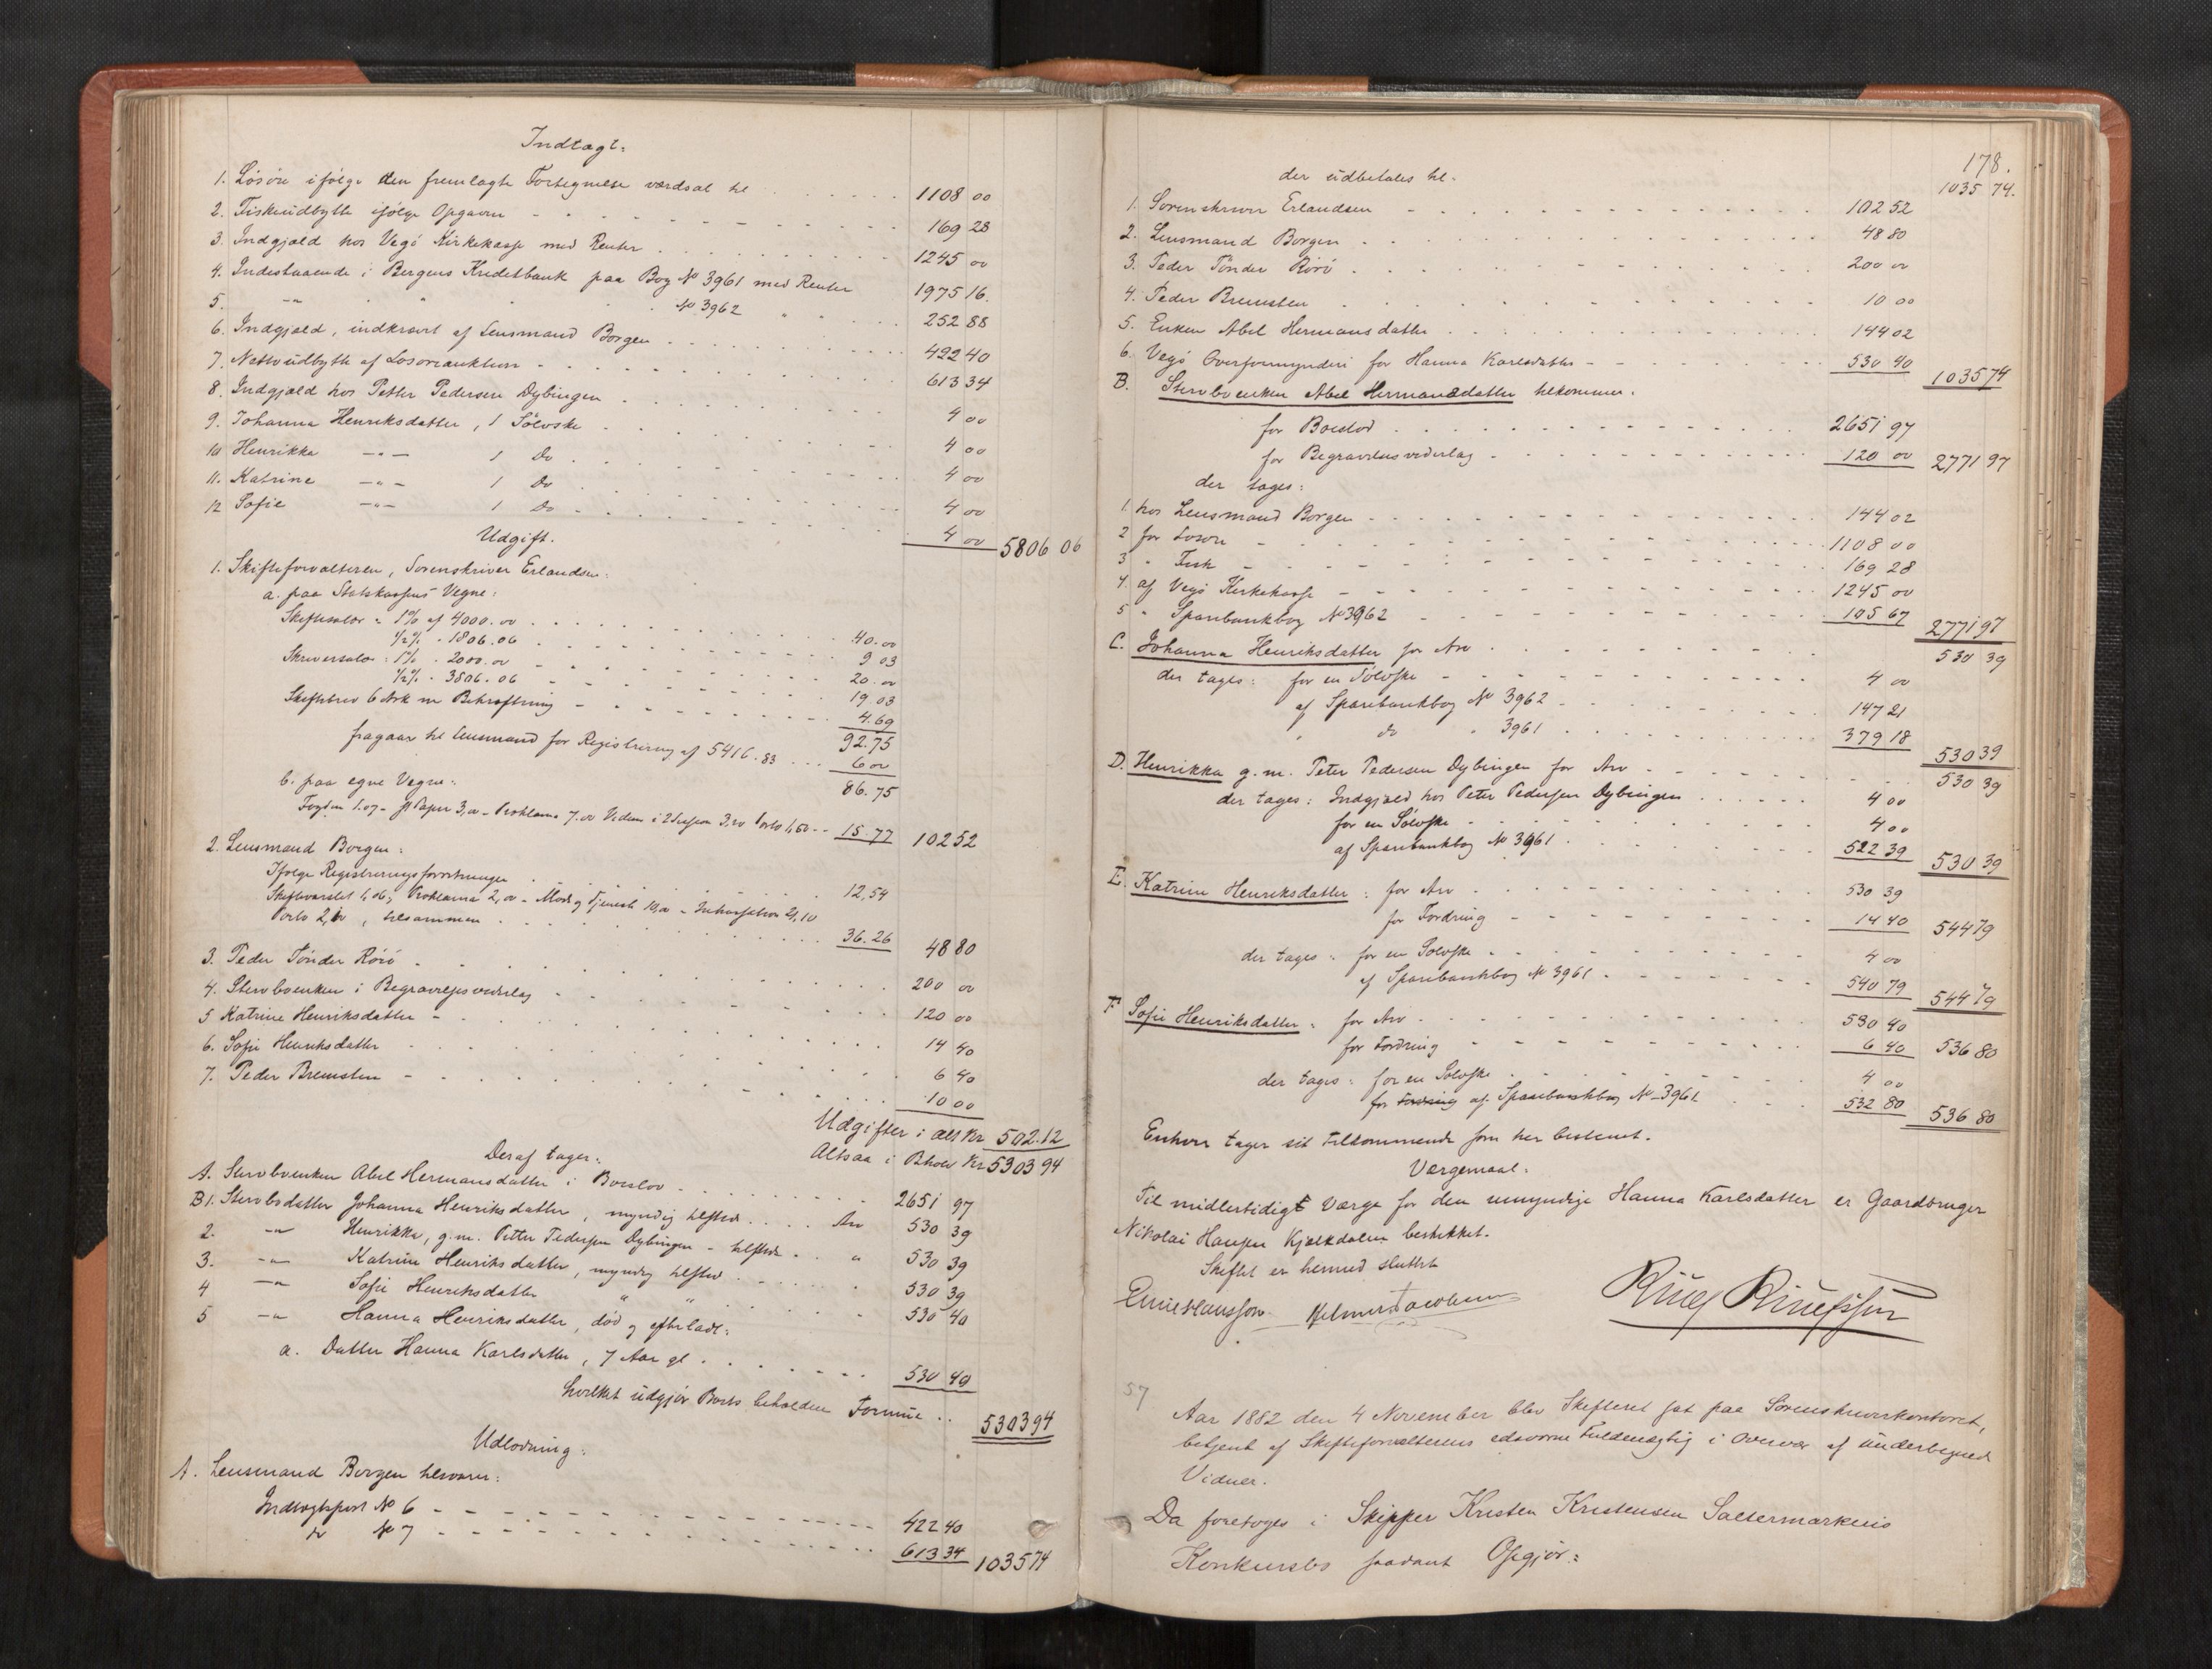 Indtægt:
1. Løsøre ifølge den fremlagte Fortegnelse værdsat til 1108 00
2. Fiskeudbytte ifølge Opgaven 169 28
3. Indgjæld hos Vegø Kirkekasse med Renter 1245 00
4. Indestaaende i Bergens Kreditbank paa Bog No 3961 med Renter 1975 16.
5. -"- " " " No 3962 " " 252 88
6. Indgjæld, indkrævet af Lensmand Borgen 422 40
7. Nettoudbytte af Løsøreauktion 613 34
8. Indgjæld hos Petter Pedersen Dybingen 4 00
9. Johanna Henriksdatter, 1 Sølvske 4 00
10 Henrikka -"- 1 Do 4 00
11. Katrine -"- 1 Do 4 00
12 Sofie -"- 1 Do 4 00 5806 06
Udgift.
1. Skifteforvalteren, Sorenskriver Erlandsen:
a. paa Statskassens Vegne:
Skiftesalær: 1% af 4000.00 40.00
1/2% - 1806.06 9 03
Skriversalær: 1% - 2000.00 20.00
1/2% - 3806.06 19.03
Skiftebrev 6 Ark m Bekræftning 4.69
92.75
fragaar til Lensmand for Registrering af 5416.83 6 00
86.75
b. paa egne Vegne:
Fogden 1.07 - Papir 3,00 - Proklama 7.00 Porto 1,50 15.77 102 52
2. Lensmand Borgen:
Ifølge Registreringsforretningen 12,54
Skiftevarslet 1,06, Proklama 2,00 - Møde og Tjeneste 10,00 - Inkassation 21,10
Porto 2,10, tilsammen 36.26 48 80
3. Peder Tønder Rörö 200 00
4. Stervboenken i Begravelsesvederlag 120 00
5 Katrine Henriksdatter 14 40
6. Sofie Henriksdatter 6 40
7. Peder Bremsten 10 00
Udgifter i alt Kr 502.12
Altsaa i Behold Kr 5303 94
Deraf tager:
A. Stervboenken Abel Hermansdatter i Boeslov 2651 97
B1. Stervbsdatter Johanna Henriksdatter, myndig tilsted Arv 530 39
2. -"- Henrikka, g.m. Petter Pedersen Dybingen - tilsted " 530 39
3. -"- Katrine Henriksdatter, myndig tilsted 530 39
4 -"- Sofie Henriksdatter " " 530 40
5 -"- Hanna Henriksdatter, død og efterladt:
a. Datter Hanna Karlsdatter, 7 Aar gl 530 40
hvilket udgjør Boets beholdne Formue 5303 94
Udlodning:
A. Lensmand Borgen tilsvarer:
Indtægtspost No 6 422 40
do No 7 613 34 1035 74
178.
1035 74.
der udbetales til.
1. Sorenskriver Erlandsen 102 52
2. Lensmand Borgen 48 80
3. Peder Tønder Rörö 200 00
4. Peder Bremsten 10 00
5. Enken Abel Hermansdatter 144 02
6. Vegø Overformynderi for Hanna Karlsdatter 530 40 1035 74
B. Stervboenken Abel Hermansdatter tilkommer.
for Boeslod 2651 97
for Begravelsesvederlag 120 00 2771 97
der tages:
1. hos Lensmand Borgen 144 02
2 for Løsøre 1108 00
3 " Fisk 169 28
4 af Vegø Kirkekasse 1245 00
5 " Sparebankbog No 3962 105 67 2771 97
C. Johanna Henriksdatter for Arv 530 39
der tages: for en Sølvske 4 00
af Sparebankbog No 3962 147 21
" do " 3961 379 18 530 39
D. Henrikka g.m. Peter Pedersen Dybingen for Arv 530 39
der tages: Indgjæld hos Peter Pedersen Dybingen 4 00
for en Sølvske 4 00
af Sparebankbog No 3961 522 39 530 39
E. Katrine Henriksdatter: for Arv 530 39
for Fordring 14 40 544 79
der tages: for en Sølvske 4 00
af Sparebankbog No 3961 540 79 544 79
F Sofie Henriksdatter: for Arv 530 40
for Fordring 6 40 536 80
der tages: for en Sølvske 4 00
for Fordring af Sparebankbog No 3961 532 80 536 80
Enhver tager sit tilkommende som her bestemt.
Værgemaal:
Til midlertidigt Værge for den umyndige Hanna Karlsdatter er Gaardbruger
Nikolai Hansen Kjælkdalen beskikket.
Skiftet er hermed sluttet
Emil Hansson Hilmer Jacobsen
57
Aar 1882 den 4 November blev Skifteret sat paa Sorenskriverkontoret,
betjent af Skifteforvalterens edsvorne Fuldmægtig i Overvær af underbegned
Vidner.
Da foretoges i Skipper Kristen Kristensen Saltermarkens
Konkursbo saadant Opgjør: